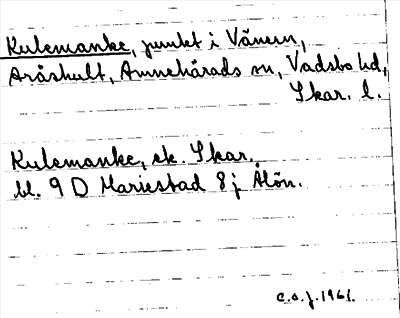 Kulemanke, punkt i Vänern,
Aråshult, Amnehärads sn, Vadsbo hd,
Skar. l.
Kulemanke, ek. Skar.
bl. 9 D Mariestad 8 j Alön.
C.O.J. 1961.